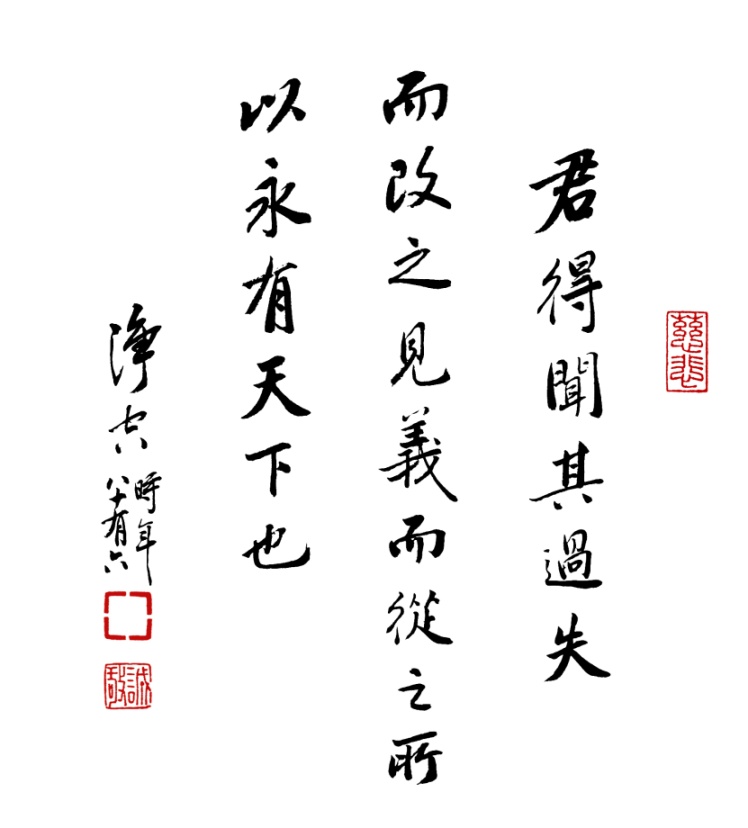 慈悲
君得聞其過失
而改之見義而從之所
以永有天下也
淨空
時年
八十有六
誠敬